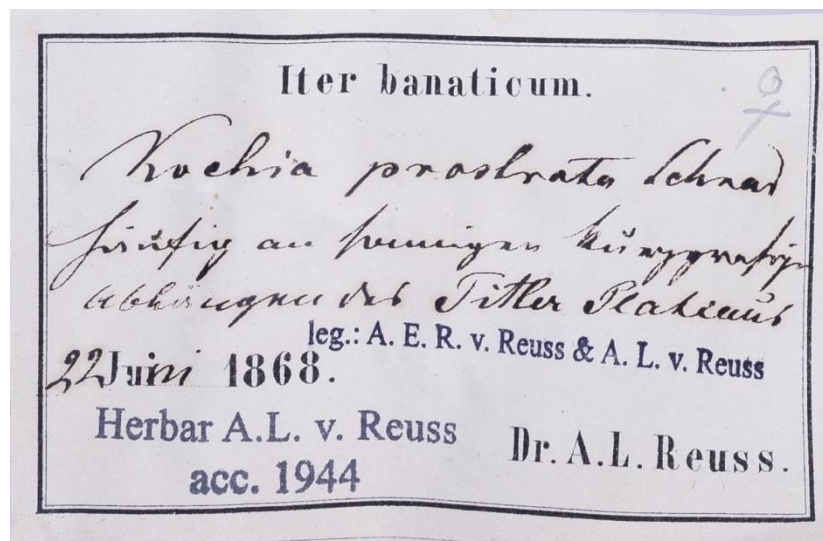 Iter banaticum.
Kochia prostrata Schrad
häufig an sonnigen kurzgrasigen
Abhängen des Titler Plateaus
leg.: A. E. R. v. Reuss & A. L. v. Reuss
22 Juni 1868.
Herbar A.L. v. Reuss
acc. 1944
Dr. A.L. Reuss.